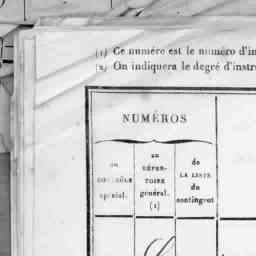 (1) Ce numéro est le numéro d'in
(2) On indiquera le degré d'instr
NUMÉROS
au
CONTRÔLE
spécial.
au
RÉPER-
TOIRE
général.
(1)
de
LA LISTE
du
contingent